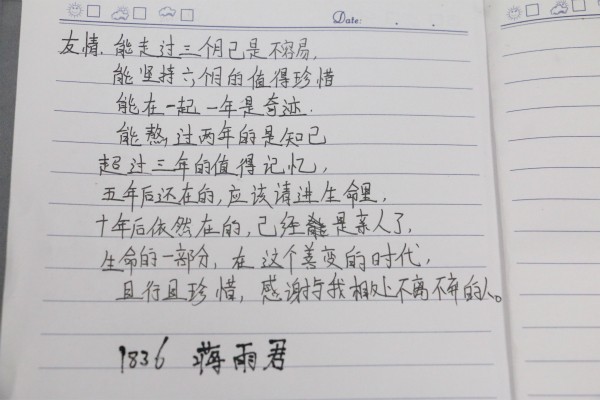 Date: . .
友情.能走过三个月已是不容易,
能坚持六个月的值得珍惜
能在一起一年是奇迹.
能熬过两年的是知己
超过三年的值得记忆,
五年后还在的,应该请进生命里,
十年后依然在的,已经是亲人了,
生命的一部分,在这个善变的时代,
且行且珍惜,感谢与我相处不离不弃的人。
1836 蒋雨君